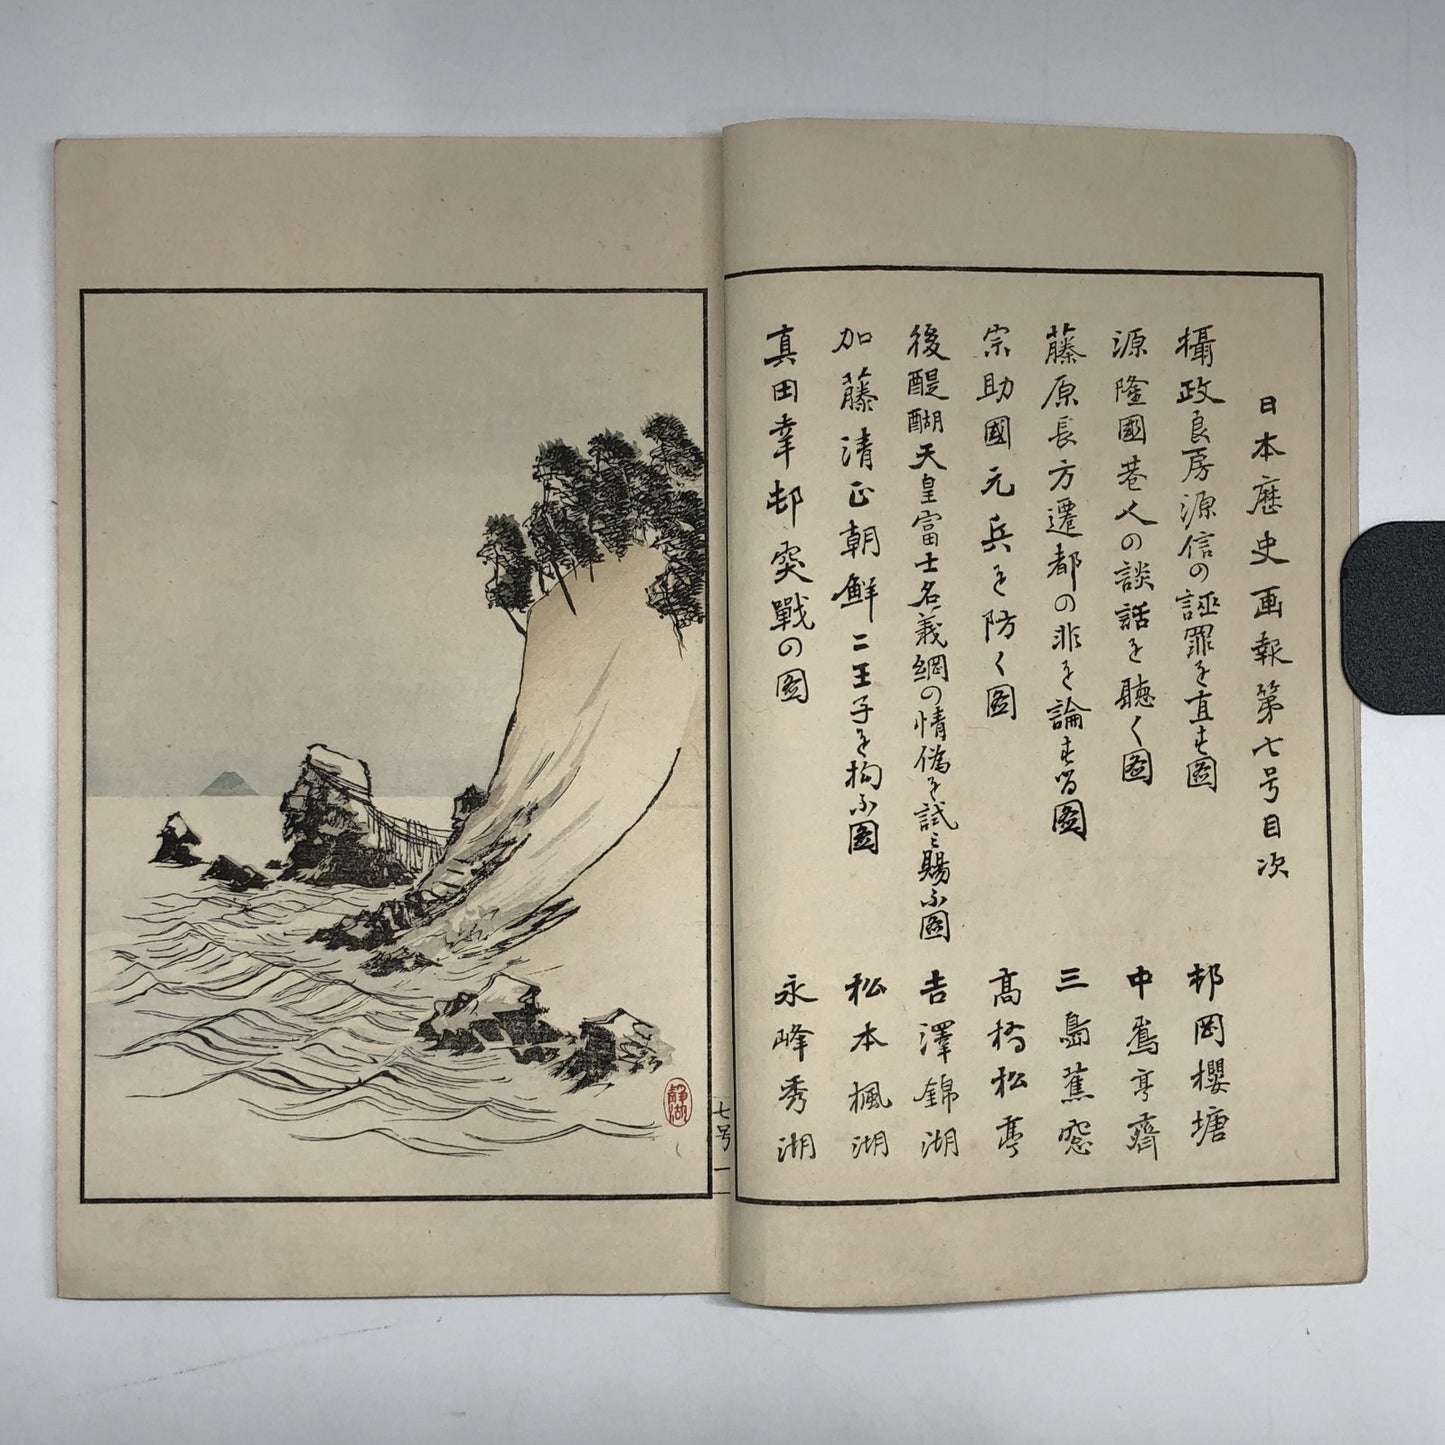 日本歴史画報第七号目次
攝政良房源信の誣罪を直す圖
村岡櫻塘
源隆國巷人の談話を聽く圖
中島亨齋
藤原長方遷都の非を論す
圖
三島蕉窓
宗助國元兵を防く圖
髙橋松亭
後醍醐天皇富士名義綱の情偽を試ミ賜ふ圖
吉澤錦湖
加藤清正朝鮮二王子を拘ふ圖
松本楓湖
真田幸邨突戰の圖
永峰秀湖
七号 一
靜湖